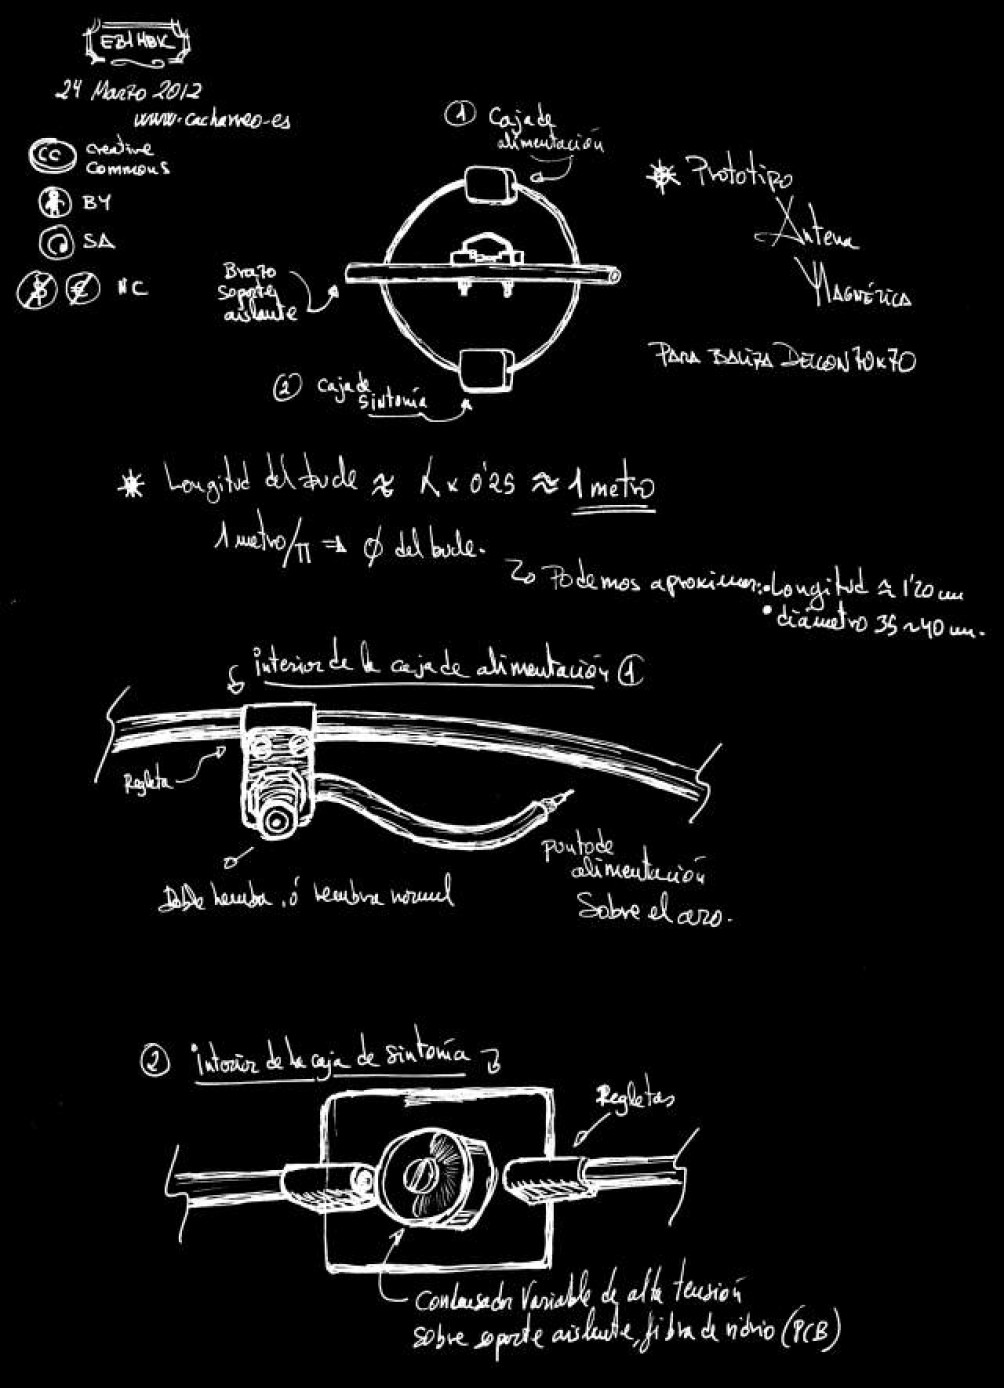 EB1HBK
24 Marzo 2012
www.cacharreo-es
CC Creative
Commons
BY
SA
$ € NC
① Caja de
alimentación
* Prototipo
Antena
MAGNÉTICA
PARA BALIZA DELCON 70x70
Brazo
soporte
aislante
② Caja de
sintonía
* Longitud del bucle ≈ λ x 0'25 ≈ 1 metro
1 metro/π ⇒ ϕ del bucle.
Podemos aproximar: • Longitud ≈ 1'20 cm
• diámetro 35 ~ 40 cm.
interior de la caja de alimentación ①
Regleta
Doble hembra, ó hembra normal
punto de
alimentación
Sobre el aro.
② interior de la caja de sintonía
Regletas
Condensador Variable de alta tensión
sobre soporte aislante, fibra de vidrio (PCB)